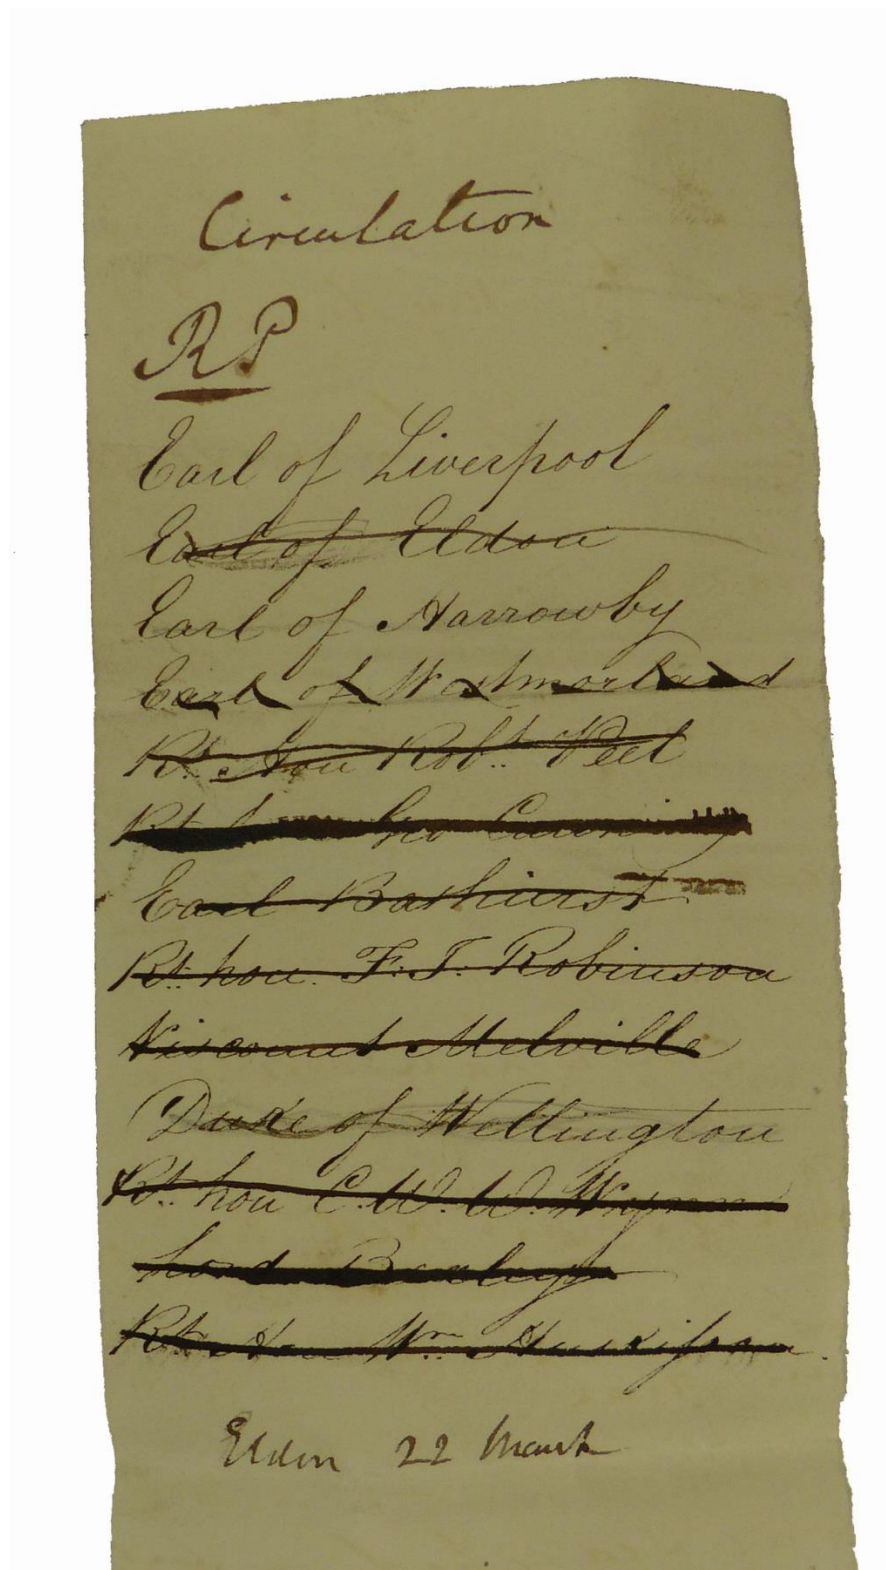 Circulation
RP
Earl of Liverpool
Earl of Eldon
Earl of Harrowby
Earl of Westmorland
Rt. Hon Robt. Peel
Rt Geo Canning
Earl Bathurst
Rt. hon. F. J. Robinson
Viscount Melville
Duke of Wellington
Rt. hon C. W. W. Wynn
Lord Bexley
Rt Hon Wm Huskisson.
Eldon 22 March